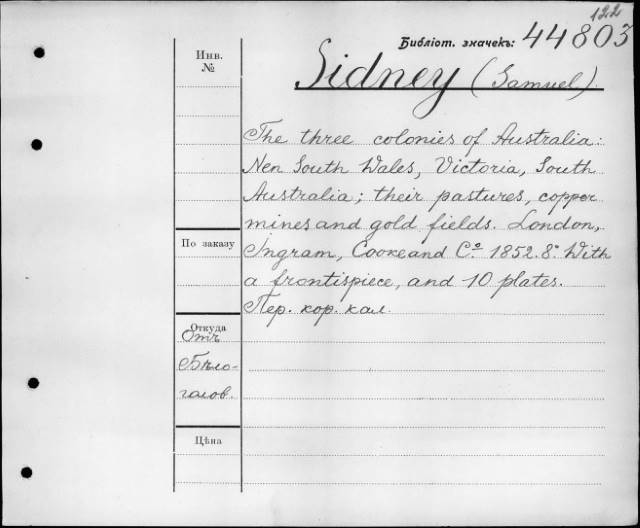 122
Библіот. значекъ: 44803
Инв.
№
Sidney (Samuel).
The three colonies of Australia:
Nen South Wales, Victoria, South
Australia; their pastures, copper
mines and gold fields. London,
По заказу
Ingram, Cooke and Cº 1852. 8º. With
a frontispiece, and 10 plates.
Пер. кор. кал.
Откуда
Отъ
Бѣло-
галов.
Цѣна